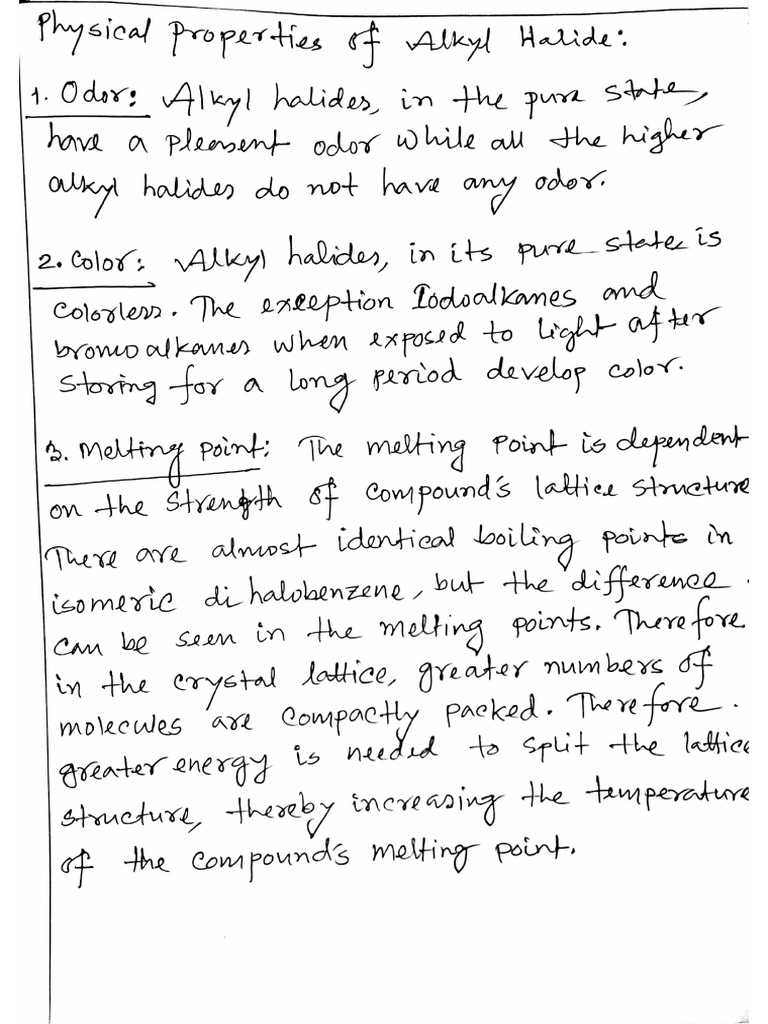 Physical Properties of Alkyl Halide:
1. Odor: Alkyl halides, in the pure state,
have a pleasent odor while all the higher
alkyl halides do not have any odor.
2. Color: Alkyl halides, in its pure state is
colorless. The exception Iodoalkanes and
bromoalkanes when exposed to light after
storing for a long period develop color.
3. Melting point: The melting point is dependent
on the strength of compound's lattice structure
There are almost identical boiling points in
isomeric dihalobenzene, but the difference.
can be seen in the melting points. Therefore
in the crystal lattice, greater numbers of
molecules are compactly packed. Therefore.
greater energy is needed to split the lattice
structure, thereby increasing the temperature
of the compound's melting point.